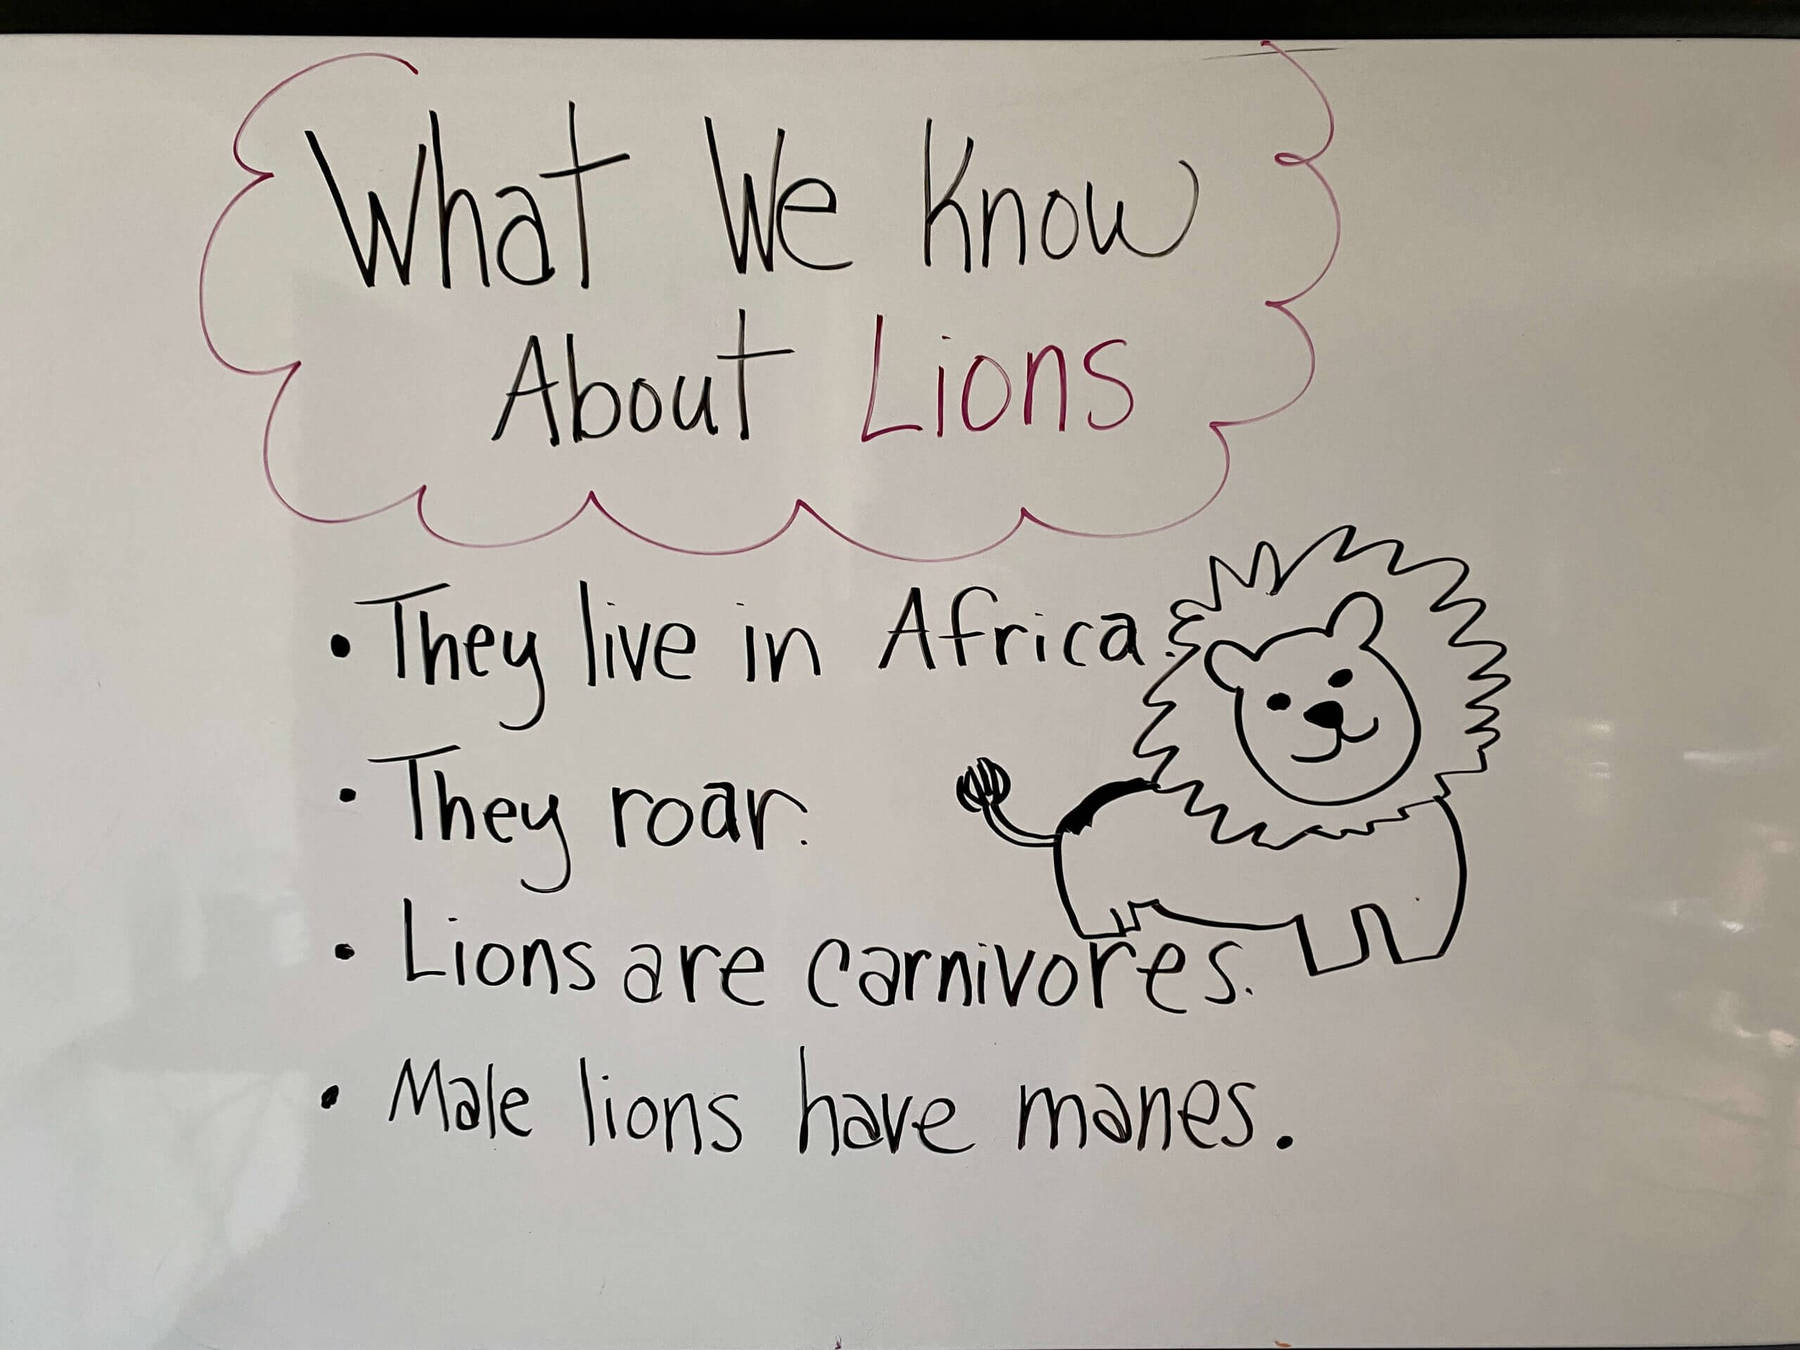 What We Know
About Lions
• They live in Africa.
• They roar.
• Lions are carnivores.
• Male lions have manes.